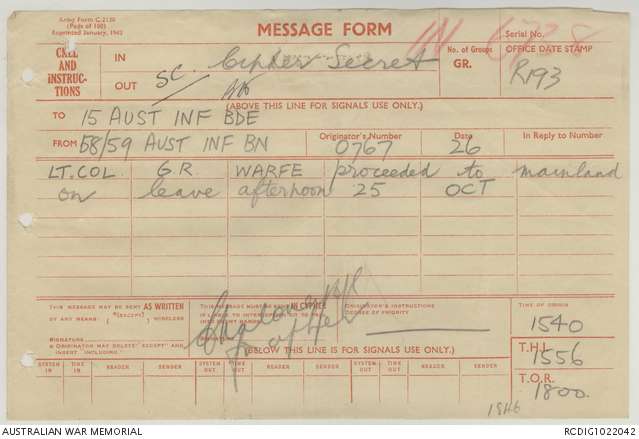 Army Form C.2136
(Pads of 100)
Reprinted January, 1942
MESSAGE FORM
Serial No.
CALL
AND
INSTRUC-
TIONS
IN
OUT
Cipher Secret
SC
No. of Groups
GR.
OFFICE DATE STAMP
R193
(ABOVE THIS LINE FOR SIGNALS USE ONLY.)
TO 15 AUST INF BDE
FROM 58/59 AUST INF BN
Originator's Number
0767
Date
26
In Reply to Number
LT. COL. G.R. WARFE proceeded to mainland
on leave afternoon 25 OCT
THIS MESSAGE MAY BE SENT AS WRITTEN
BY ANY MEANS. (EXCEPT) WIRELESS
SIGNATURE
ORIGINATOR MAY DELETE "EXCEPT" AND
INSERT "INCLUDING."
THIS MESSAGE MUST BE SENT IN CYPHER
ORIGINATOR'S INSTRUCTIONS
DEGREE OF PRIORITY
(BELOW THIS LINE IS FOR SIGNALS USE ONLY.)
TIME OF ORIGIN
1540
T.H.I.
1556
T.O.R.
1800
SYSTEM IN
TIME IN
READER
SENDER
SYSTEM OUT
TIME OUT
READER
SENDER
SYSTEM OUT
TIME OUT
READER
SENDER
1846
AUSTRALIAN WAR MEMORIAL
RCDIG1022042